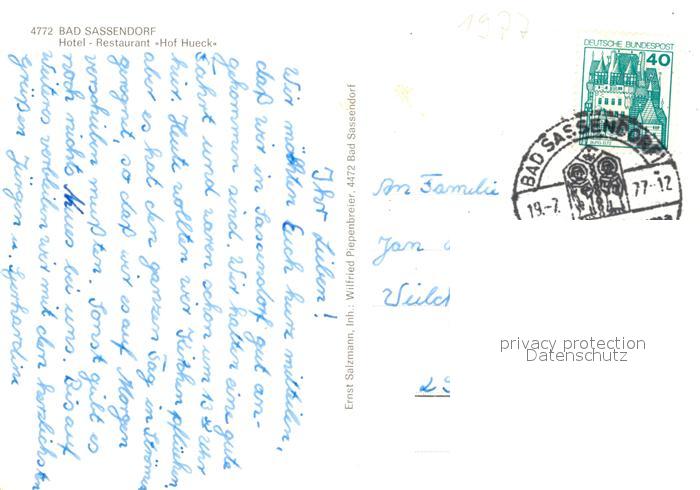 4772 BAD SASSENDORF
Hotel - Restaurant »Hof Hueck«
Ihr Lieben!
Wir möchten Euch kurz mitteilen,
daß wir in Sassendorf gut an-
gekommen sind. Wir hatten eine gute
Fahrt und waren schon um 13 Uhr
hier. Heute wollten wir Kirschen pflücken
aber es hat den ganzen Tag in Strömen
geregnet, so daß wir es auf Morgen
verschieben mußten. Sonst gibt es
noch nichts Neues bei uns. Bis auf
Weiteres verbleiben wir mit den herzlichsten
Grüßen Jürgen u. Gerhardine
Ernst Salzmann, Inh.: Wilfried Piepenbreier, 4472 Bad Sassendorf
1977
DEUTSCHE BUNDESPOST
40
BAD SASSENDORF
19.-7. 77-12
An Familie
Jan
privacy protection
Datenschutz